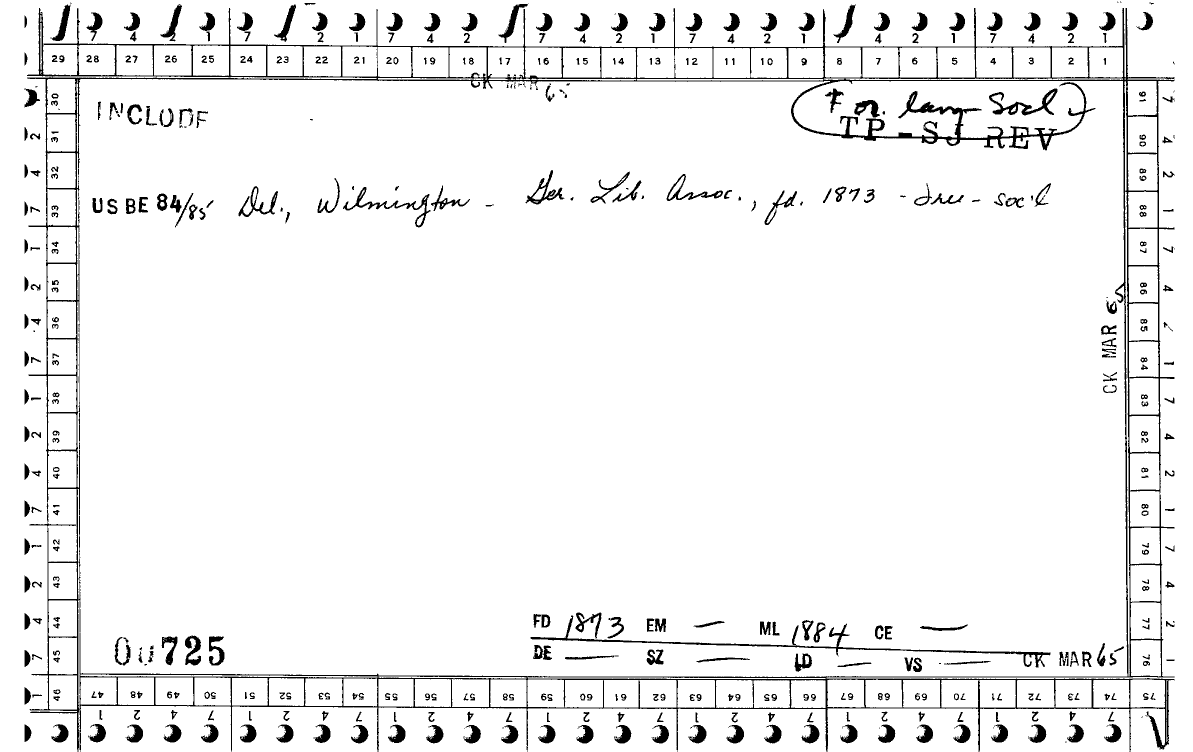 7 4 2 1 7 4 2 1 7 4 2 1 7 4 2 1 7 4 2 1 7 4 2 1 7 4 2 1
29 28 27 26 25 24 23 22 21 20 19 18 17 16 15 14 13 12 11 10 9 8 7 6 5 4 3 2 1
CK MAR 65
INCLUDE
For. lang Socl
TP-SJ REV
US BE 84/85 Del., Wilmington - Ger. Lib. Assoc., fd. 1873 - Free - soc'l
CK MAR 65
FD 1873 EM — ML 1884 CE —
DE — SZ — LD — VS — CK MAR 65
00725
30 31 32 33 34 35 36 37 38 39 40 41 42 43 44 45 46
2 4 7 1 2 4 7 1 2 4 7 1 2 4 7 1
91 90 89 88 87 86 85 84 83 82 81 80 79 78 77 76
7 4 2 1 7 4 2 1 7 4 2 1 7 4 2 1
47 48 49 50 51 52 53 54 55 56 57 58 59 60 61 62 63 64 65 66 67 68 69 70 71 72 73 74 75
1 2 4 7 1 2 4 7 1 2 4 7 1 2 4 7 1 2 4 7 1 2 4 7 1 2 4 7